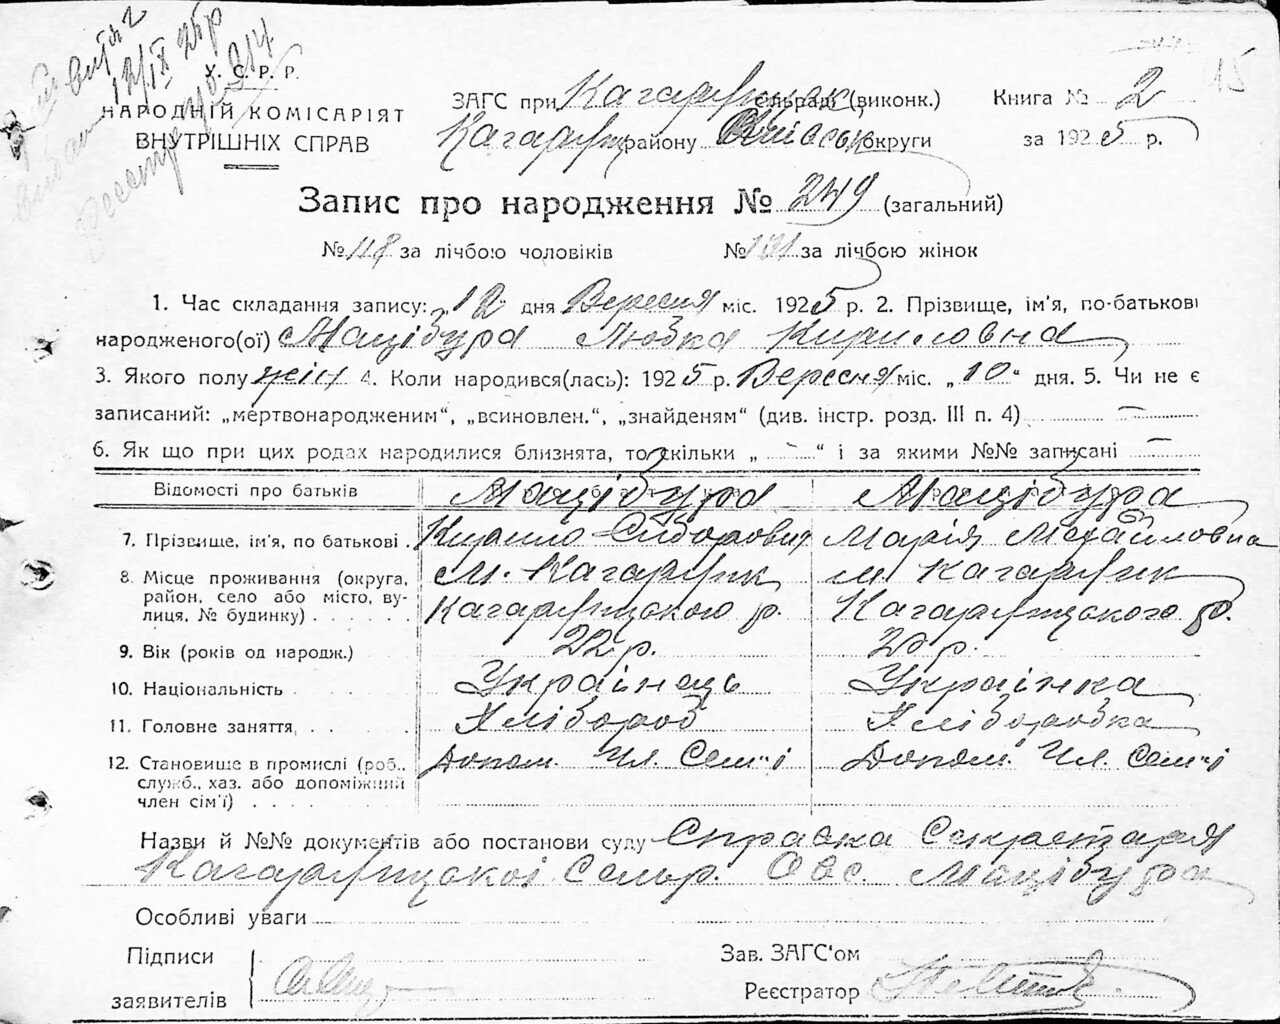 витяг
12/IX 25р
У. С. Р. Р.
НАРОДНІЙ КОМІСАРІЯТ
ВНУТРІШНІХ СПРАВ
ЗАГС при Кагарлицьк. сельраді (виконк.)
Кагарлиц району Київськ округи
Книга № 2
за 1925 р.
15
Запис про народження № 249 (загальний)
№ 118 за лічбою чоловіків № 131 за лічбою жінок
1. Час складання запису: 12 дня Вересня міс. 1925 р. 2. Прізвище, ім'я, по-батькові
народженого(ої) Мацібура Любка Кириловна
3. Якого полу жін 4. Коли народився(лась): 1925 р. Вересня міс. „10“ дня. 5. Чи не є
записаний: „мертвонародженим“, „всиновлен.“, „знайденям“ (див. інстр. розд. III п. 4) —
6. Як що при цих родах народилися близнята, то скільки „ - “ і за якими №№ записані —
Відомості про батьків Мацібура Мацібура
7. Прізвище, ім'я, по батькові Кирило Сидорович Марія Михайловна
8. Місце проживання (округа, м. Кагарлик м Кагарлик
район, село або місто, ву- Кагарлицького р. Кагарлицького р.
лиця, № будинку)
9. Вік (років од народж.) 22 р. 20 р.
10. Національність Українець Українка
11. Головне заняття, Хлібороб Хліборобка
12. Становище в промислі (роб., Допом. Чл. Сем'ї Допом. Чл. Сем'ї
служб., хаз. або допоміжний
член сім'ї)
Назви й №№ документів або постанови суду Справка Секретаря
Кагарлицької Сельр. Овс. Мацібура
Особливі уваги
Підписи
заявителів
Зав. ЗАГС'ом
Реєстратор